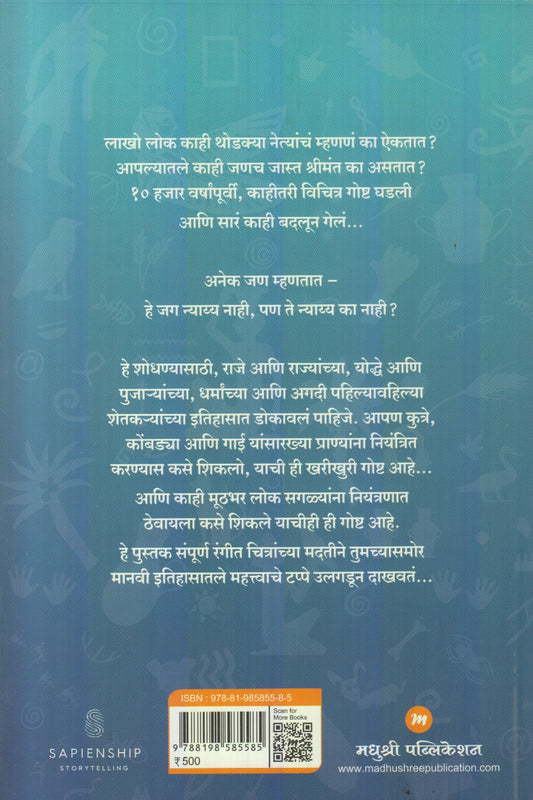 लाखो लोक काही थोडक्या नेत्यांचं म्हणणं का ऐकतात?
आपल्यातले काही जणच जास्त श्रीमंत का असतात?
१० हजार वर्षांपूर्वी, काहीतरी विचित्र गोष्ट घडली
आणि सारं काही बदलून गेलं...
अनेक जण म्हणतात –
हे जग न्याय्य नाही, पण ते न्याय्य का नाही?
हे शोधण्यासाठी, राजे आणि राज्यांच्या, योद्धे आणि
पुजाऱ्यांच्या, धर्मांच्या आणि अगदी पहिल्यावहिल्या
शेतकऱ्यांच्या इतिहासात डोकावलं पाहिजे. आपण कुत्रे,
कोंबड्या आणि गाई यांसारख्या प्राण्यांना नियंत्रित
करण्यास कसे शिकलो, याची ही खरीखुरी गोष्ट आहे...
आणि काही मूठभर लोक सगळ्यांना नियंत्रणात
ठेवायला कसे शिकले याचीही ही गोष्ट आहे.
हे पुस्तक संपूर्ण रंगीत चित्रांच्या मदतीने तुमच्यासमोर
मानवी इतिहासातले महत्त्वाचे टप्पे उलगडून दाखवतं...
ISBN : 978-81-985855-8-5
Scan for
More Books
9 788198 585585
₹ 500
SAPIENSHIP
STORYTELLING
मधुश्री पब्लिकेशन
www.madhushreepublication.com